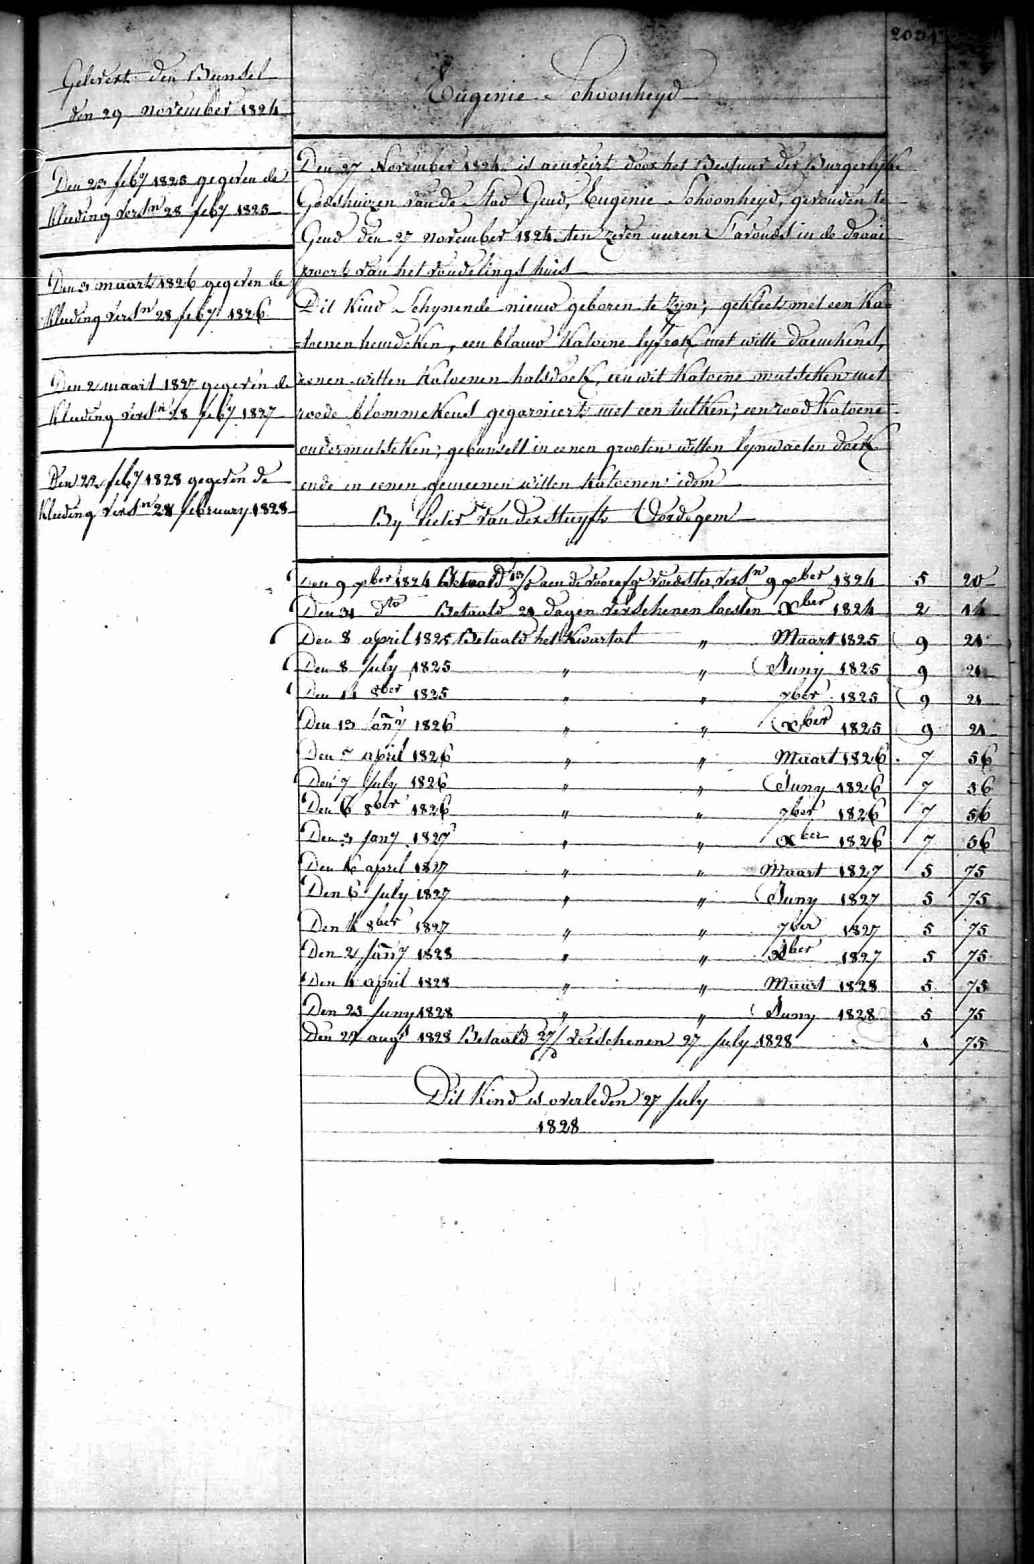 Gelevert den Bunsel
den 29 november 1824
Den 23 feby 1825 gegeven de
kleeding versn 28 feby 1825
Den 3 maart 1826 gegeven de
kleeding versn 28 feby 1826
Den 2 maart 1827 gegeven de
kleeding versn 28 feby 1827
Den 22 feby 1828 gegeven de
kleeding versn 28 february 1828
Eugenie Schoonheyd
Den 27 November 1824 is aenveirt door het Bestuur der Burgerlijke
Godshuizen van de Stad Gend, Eugenie Schoonheyd, gevonden te
Gend den 25 november 1824 ten zeven uuren S'avonds in de draai
poort van het vondelings huis
Dit Kind Schynende nieuw geboren te zyn; gekleet met een Ka=
=toenen hemdeken, een blauw Katoene lyfrok met witte daemkens,
eenen witten Katoenen halsdoek, een wit Katoene mutsken met
roode blommekens gegarniert met een tulken; een rood Katoene
ondermutsken; gebunselt in eenen grooten witten lynwaeten doek
ende in eenen gemeenen witten Katoenen idem
By Pieter Van der Stuyft Oordegem
Den 9 xber 1824 Betaald aen de voorafge voedster versn 9 xber 1824 5 20
Den 31 dto Betaald 21 dagen verschenen laesten Xber 1824 2 14
Den 8 april 1825 Betaald het Kwartal " Maart 1825 9 21
Den 8 July 1825 " " Juny 1825 9 21
Den 14 8ber 1825 " " 7ber 1825 9 21
Den 13 Jany 1826 " " Xber 1825 9 21
Den 5 april 1826 " " Maart 1826 7 56
Den 7 July 1826 " " Juny 1826 7 56
Den 6 8ber 1826 " " 7ber 1826 7 56
Den 3 Jany 1827 " " Xber 1826 7 56
Den 16 april 1827 " " Maart 1827 5 75
Den 6 July 1827 " " Juny 1827 5 75
Den 4 8ber 1827 " " 7ber 1827 5 75
Den 2 Jany 1828 " " Xber 1827 5 75
Den 4 april 1828 " " Maart 1828 5 75
Den 23 Juny 1828 " " Juny 1828 5 75
Den 22 augt 1828 Betaald 27/ verschenen 27 July 1828 1 75
Dit Kind is overleden 27 July
1828